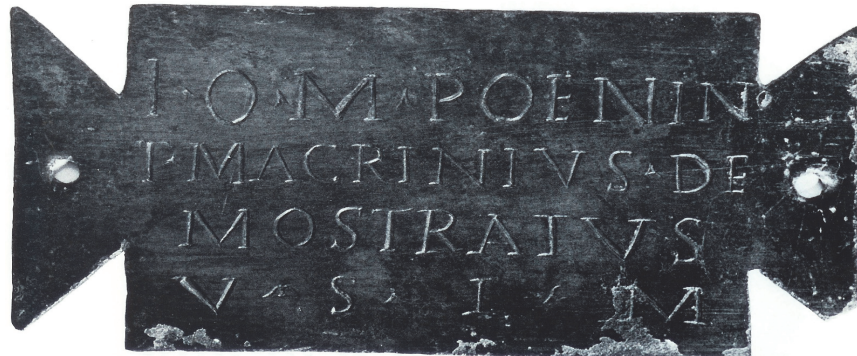 I · O · M · POENINO
T · MACRINIVS · DE
MOSTRATVS
V · S · L · M